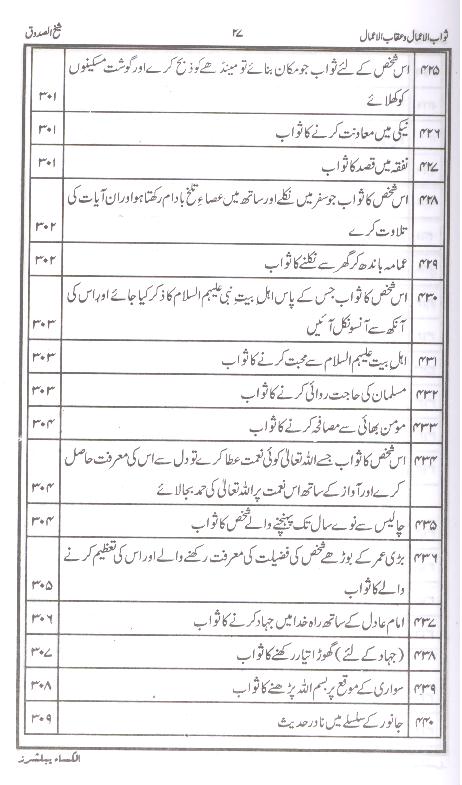 ثواب الاعمال و عقاب الاعمال ۲۷ شیخ الصدوق
۴۲۵ اس شخص کے لئے ثواب جو مکان بنائے تو مینڈھے کو ذبح کرے اور گوشت مسکینوں
کو کھلائے ۳۰۱
۴۲۶ نیکی میں معاونت کرنے کا ثواب ۳۰۱
۴۲۷ نفقہ میں قصد کا ثواب ۳۰۱
۴۲۸ اس شخص کا ثواب جو سفر میں نکلے اور ساتھ میں عصاءِ تلخ بادام رکھتا ہو اور ان آیات کی
تلاوت کرے ۳۰۲
۴۲۹ عمامہ باندھ کر گھر سے نکلنے کا ثواب ۳۰۲
۴۳۰ اس شخص کا ثواب جس کے پاس اہل بیتِ نبی علیہم السلام کا ذکر کیا جائے اور اس کی
آنکھ سے آنسو نکل آئیں ۳۰۳
۴۳۱ اہلِ بیت علیہم السلام سے محبت کرنے کا ثواب ۳۰۳
۴۳۲ مسلمان کی حاجت روائی کرنے کا ثواب ۳۰۳
۴۳۳ مومن بھائی سے مصافحہ کرنے کا ثواب ۳۰۴
۴۳۴ اس شخص کا ثواب جسے اللہ تعالیٰ کوئی نعمت عطا کرے تو دل سے اس کی معرفت حاصل
کرے اور آواز کے ساتھ اس نعمت پر اللہ تعالیٰ کی حمد بجا لائے ۳۰۴
۴۳۵ چالیس سے نوے سال تک پہنچنے والے شخص کا ثواب ۳۰۴
۴۳۶ بڑی عمر کے بوڑھے شخص کی فضیلت کی معرفت رکھنے والے اور اس کی تعظیم کرنے
والے کا ثواب ۳۰۵
۴۳۷ امام عادل کے ساتھ راہ خدا میں جہاد کرنے کا ثواب ۳۰۶
۴۳۸ (جہاد کے لئے) گھوڑا تیار رکھنے کا ثواب ۳۰۷
۴۳۹ سواری کے موقع پر بسم اللہ پڑھنے کا ثواب ۳۰۸
۴۴۰ جانور کے سلسلے میں نادر حدیث ۳۰۹
الکساء پبلشرز